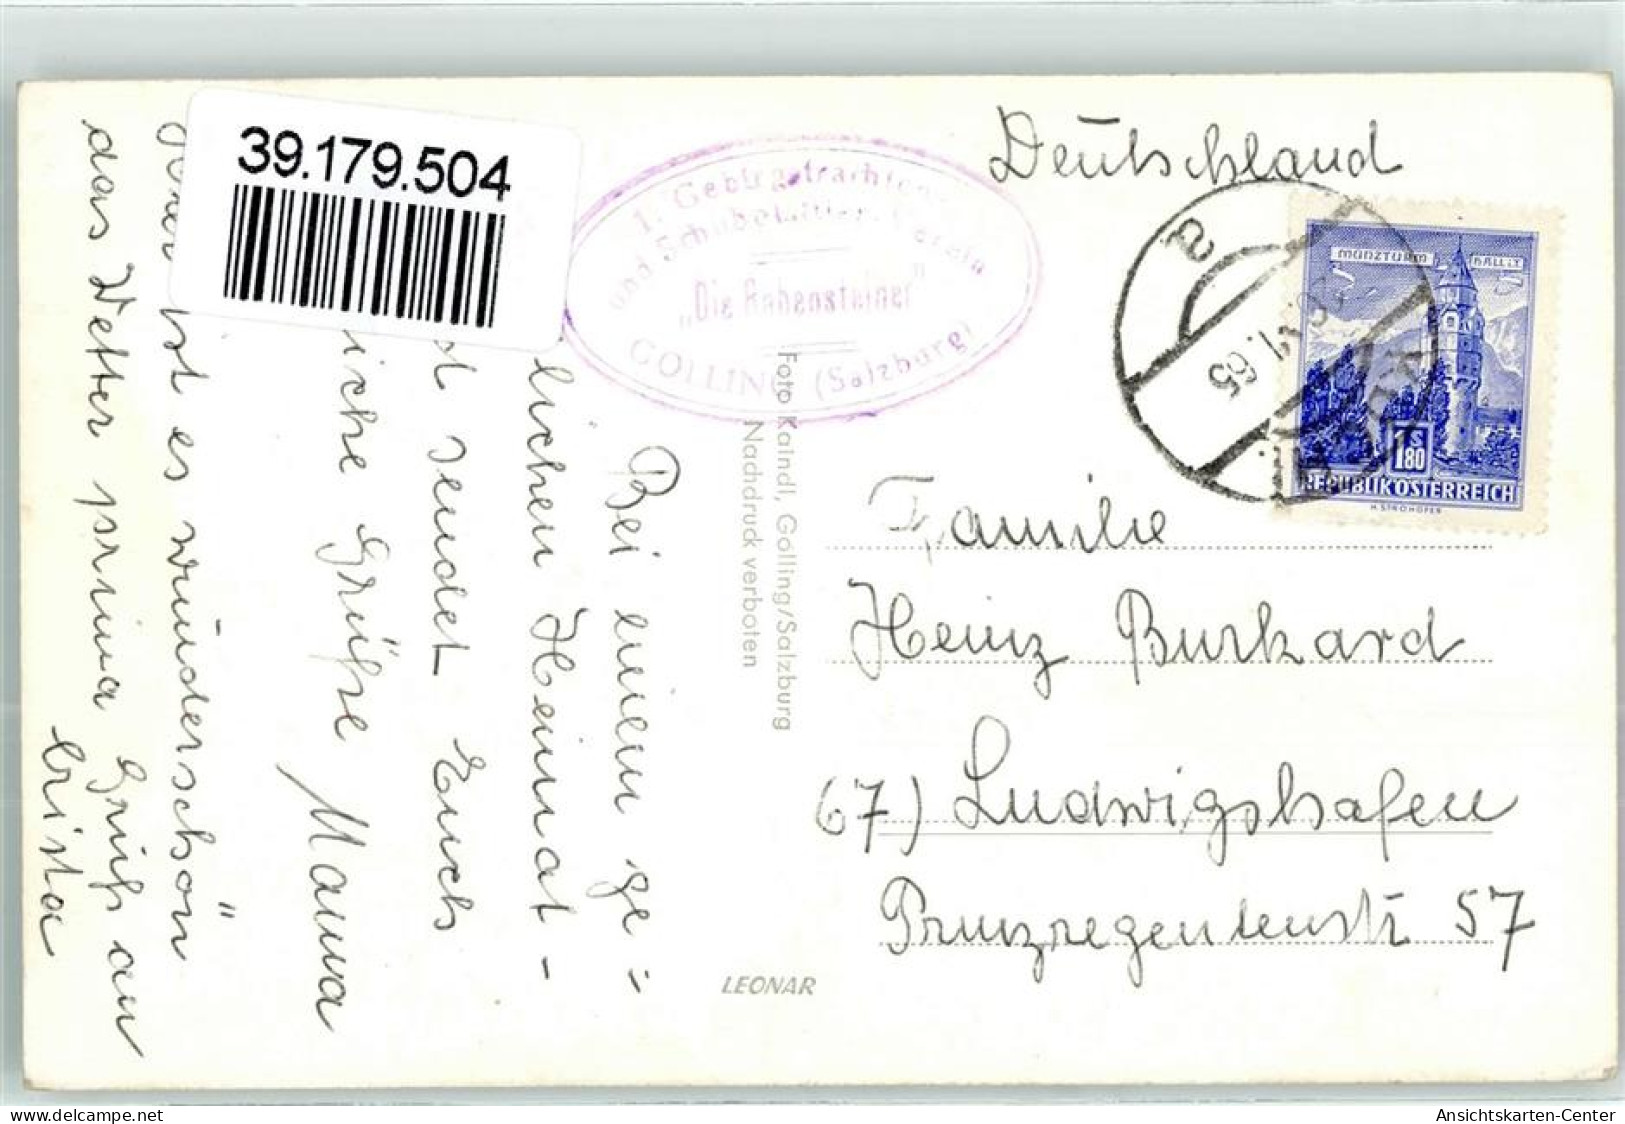 39.179.504
1. Gebirgstrachten-
und Schuhplattler-Verein
„Die Rabensteiner"
GOLLING (Salzburg)
Deutschland
MÜNZTURM
HALL i.T.
S
1.80
REPUBLIK ÖSTERREICH
H. STROHOFER
65
a
Bei einem ge=
lichen Heimat-
sendet Euch
iche Grüße Mama
ist es wunderschön
das Wetter prima Gruß an
Crista
Foto Kaindl, Golling/Salzburg
Nachdruck verboten
LEONAR
Familie
Heinz Burkard
67) Ludwigshafen
Prinzregentenstr 57
Ansichtskarten-Center
www.delcampe.net